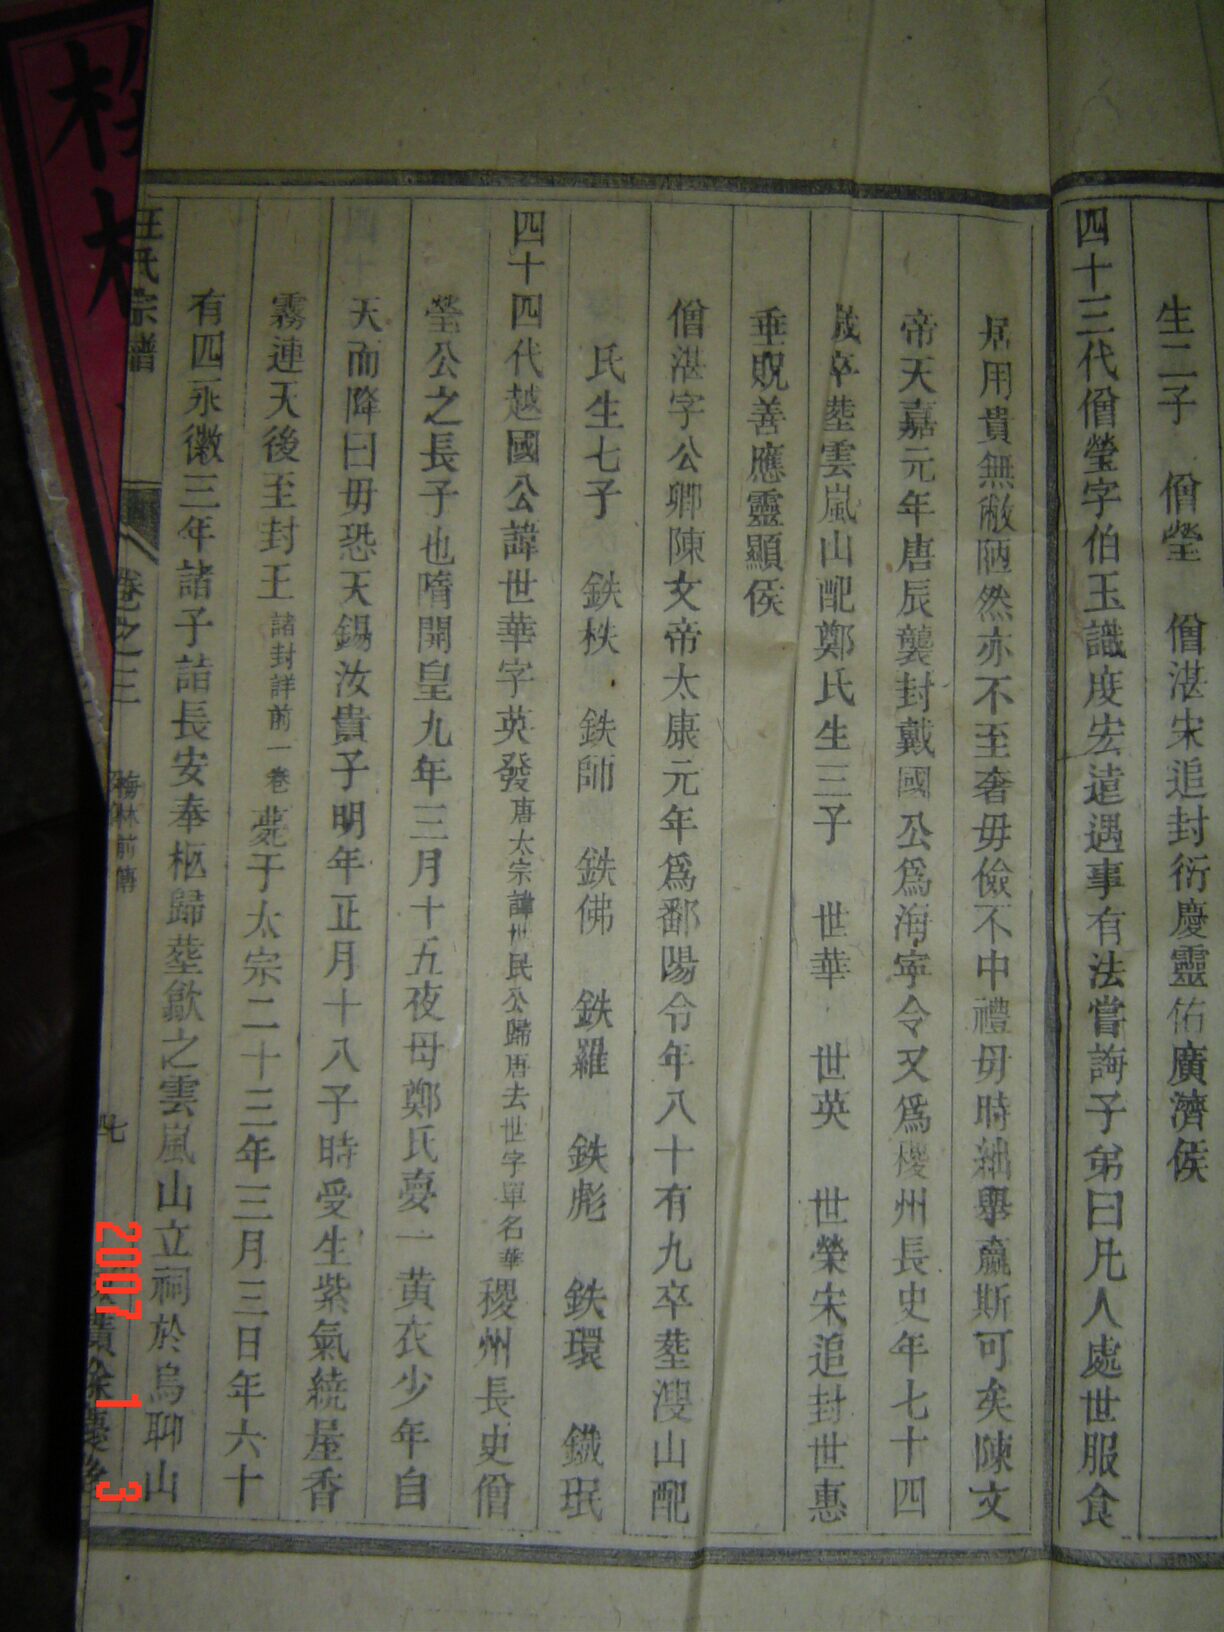 生二子　僧瑩　僧湛宋追封衍慶靈佑廣濟侯
四十三代僧瑩字伯玉識度宏遠遇事有法嘗誨子弟曰凡人處世服食
居用貴無敝陋然亦不至奢毋儉不中禮毋時絀舉贏斯可矣陳文
帝天嘉元年唐辰襲封戴國公爲海寧令又爲稷州長史年七十四
歲卒塟雲嵐山配鄭氏生三子　世華　世英　世榮宋追封世惠
垂貺善應靈顯侯
僧湛字公卿陳文帝太康元年爲鄱陽令年八十有九卒塟溲山配
氏生七子　鉄柣　鉄師　鉄佛　鉄羅　鉄彪　鉄環　鐡珉
四十四代越國公諱世華字英發唐太宗諱世民公歸唐去世字單名華稷州長史僧
瑩公之長子也隋開皇九年三月十五夜母鄭氏夢一黄衣少年自
天而降曰毋恐天錫汝貴子明年正月十八子時受生紫氣繞屋香
霧連天後至封王諸封詳前一卷薨于太宗二十三年三月三日年六十
有四永徽三年諸子詣長安奉柩歸塟歙之雲嵐山立祠於烏聊山
汪氏宗譜　卷之三　梅林前傳　四七
2007 1 3